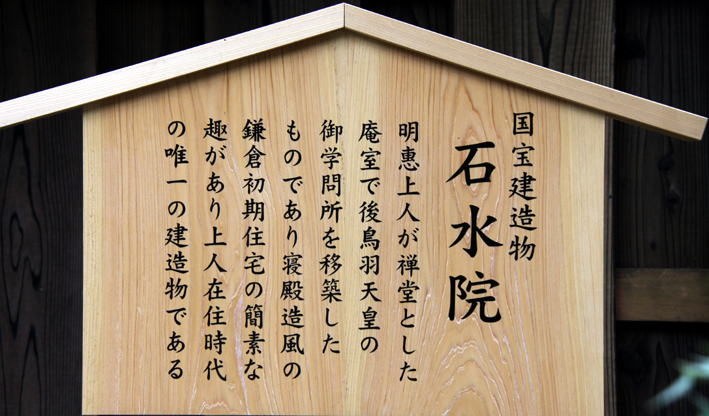 国宝建造物
石水院
明惠上人が禅堂とした
庵室で後鳥羽天皇の
御学問所を移築した
ものであり寝殿造風の
鎌倉初期住宅の簡素な
趣があり上人在住時代
の唯一の建造物である